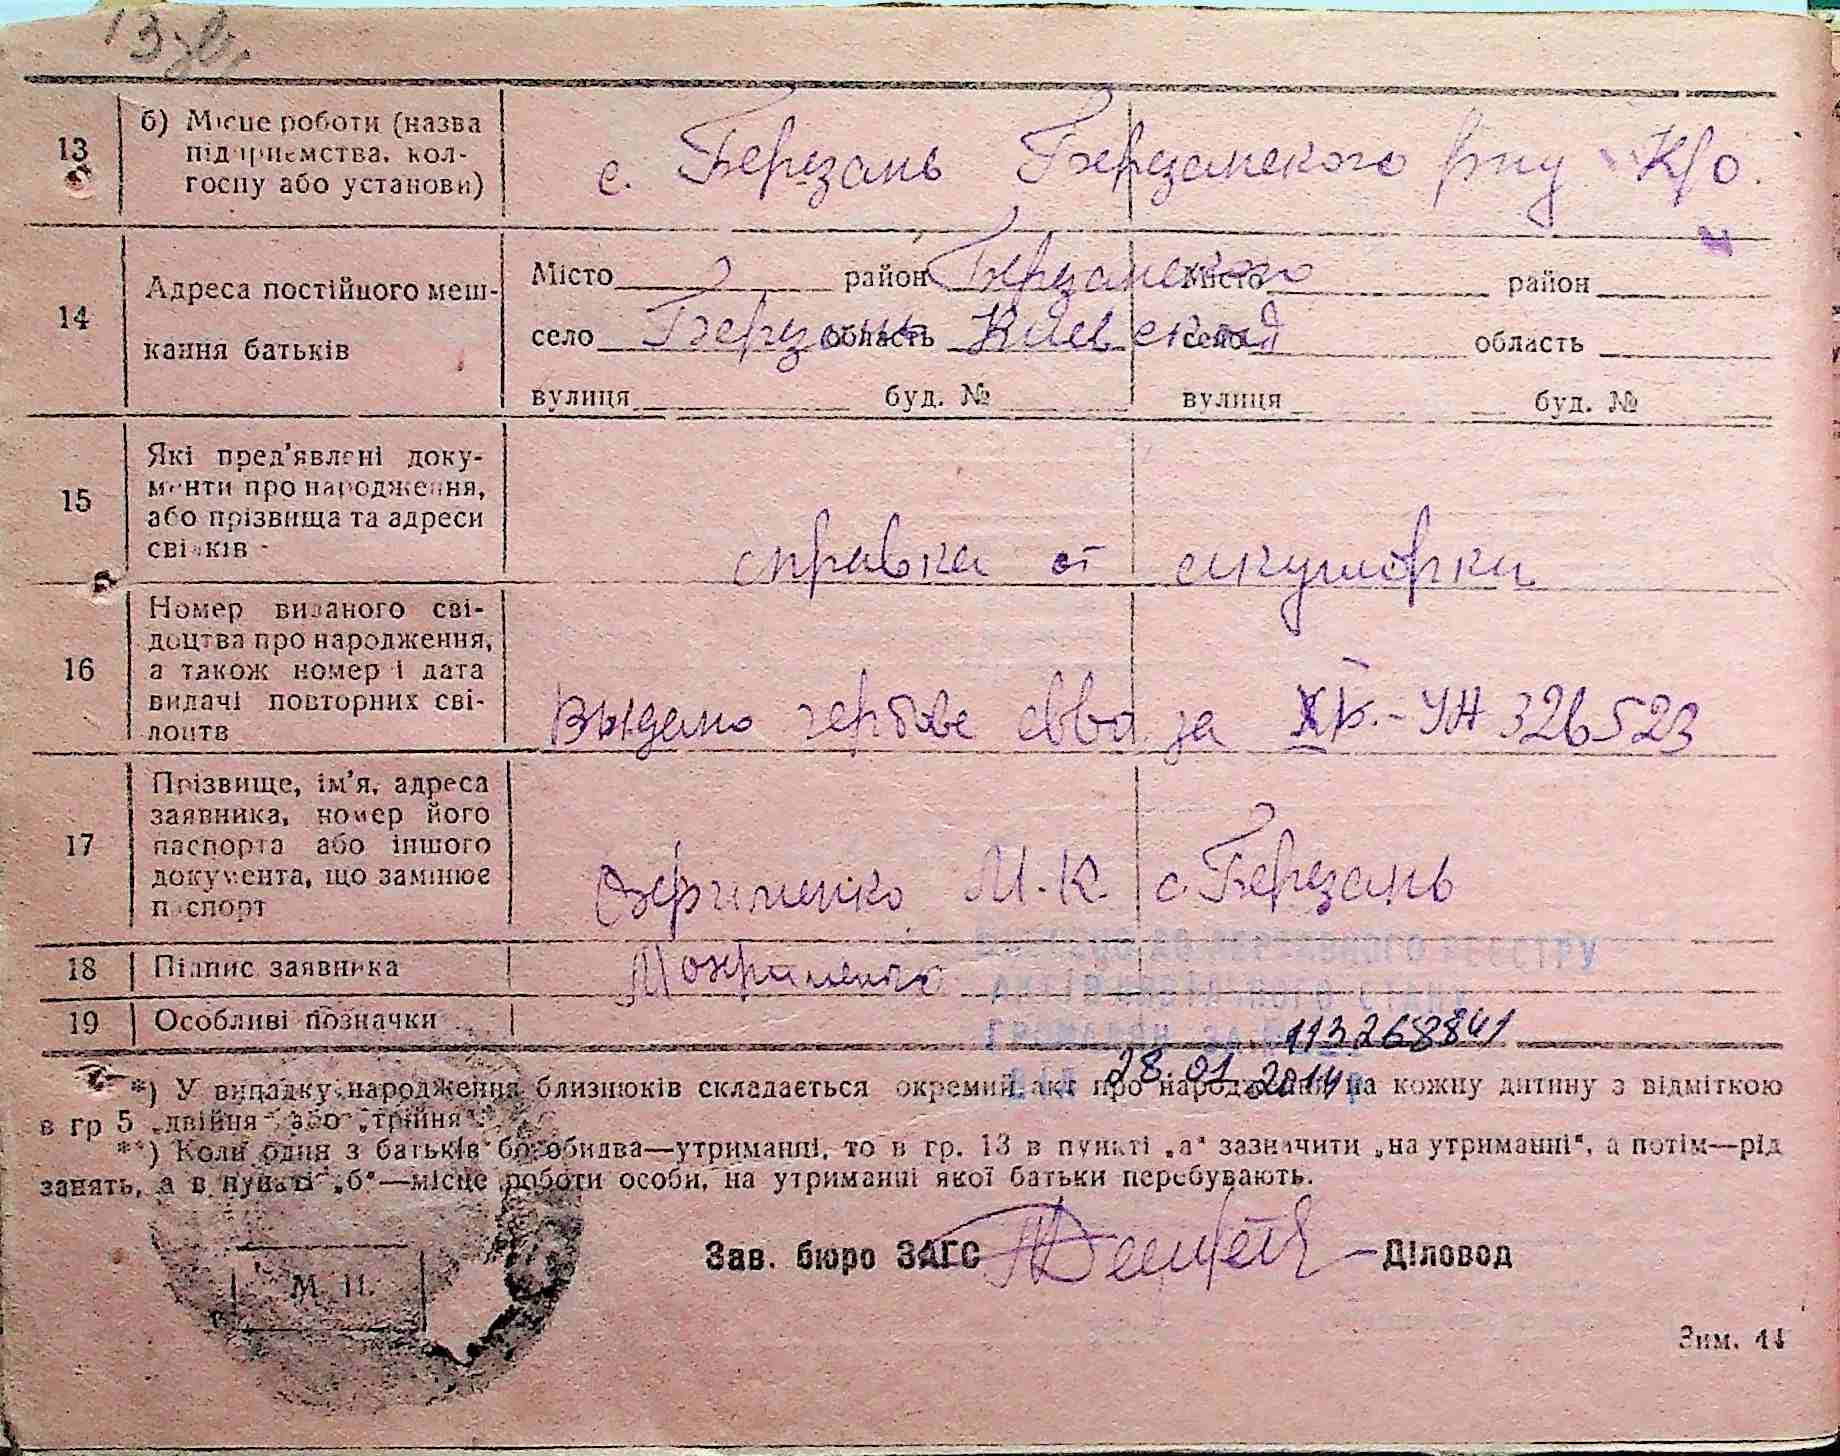 13 зв.
13
б) Місце роботи (назва
підприємства, кол-
госпу або установи)
с. Березань Березанского р-ну К/о.
14
Адреса постійного меш-
кання батьків
Місто район Березанского Місто район
село Березань область Киевская село область
вулиця буд. № вулиця буд. №
15
Які пред'явлені доку-
менти про народження,
або прізвища та адреси
свідків -
справка от акушорки
16
Номер виданого сві-
доцтва про народження,
а також номер і дата
видачі повторних сві-
доцтв
Выдано гербове св-во за УН 326523
17
Прізвище, ім'я, адреса
заявника, номер його
паспорта або іншого
документа, що замінює
паспорт
Охрименко М.К. с. Березань
18 Підпис заявника
М Охрименко
19 Особливі позначки
ВНЕСЕНО ДО ДЕРЖАВНОГО РЕЄСТРУ
АКТІВ ЦИВІЛЬНОГО СТАНУ
ГРОМАДЯН ЗА № 113268841
ВІД 28.01.2014 р
*) У випадку народження близнюків складається окремий акт про народження на кожну дитину з відміткою
в гр 5 „двійня" або „трійня".
**) Коли один з батьків бо обидва—утриманні, то в гр. 13 в пункті „а" зазначити „на утриманні", а потім—рід
занять, а в пункті „б"—місце роботи особи, на утриманні якої батьки перебувають.
Зав. бюро ЗАГС Діловод
М. П.
Зим. 44